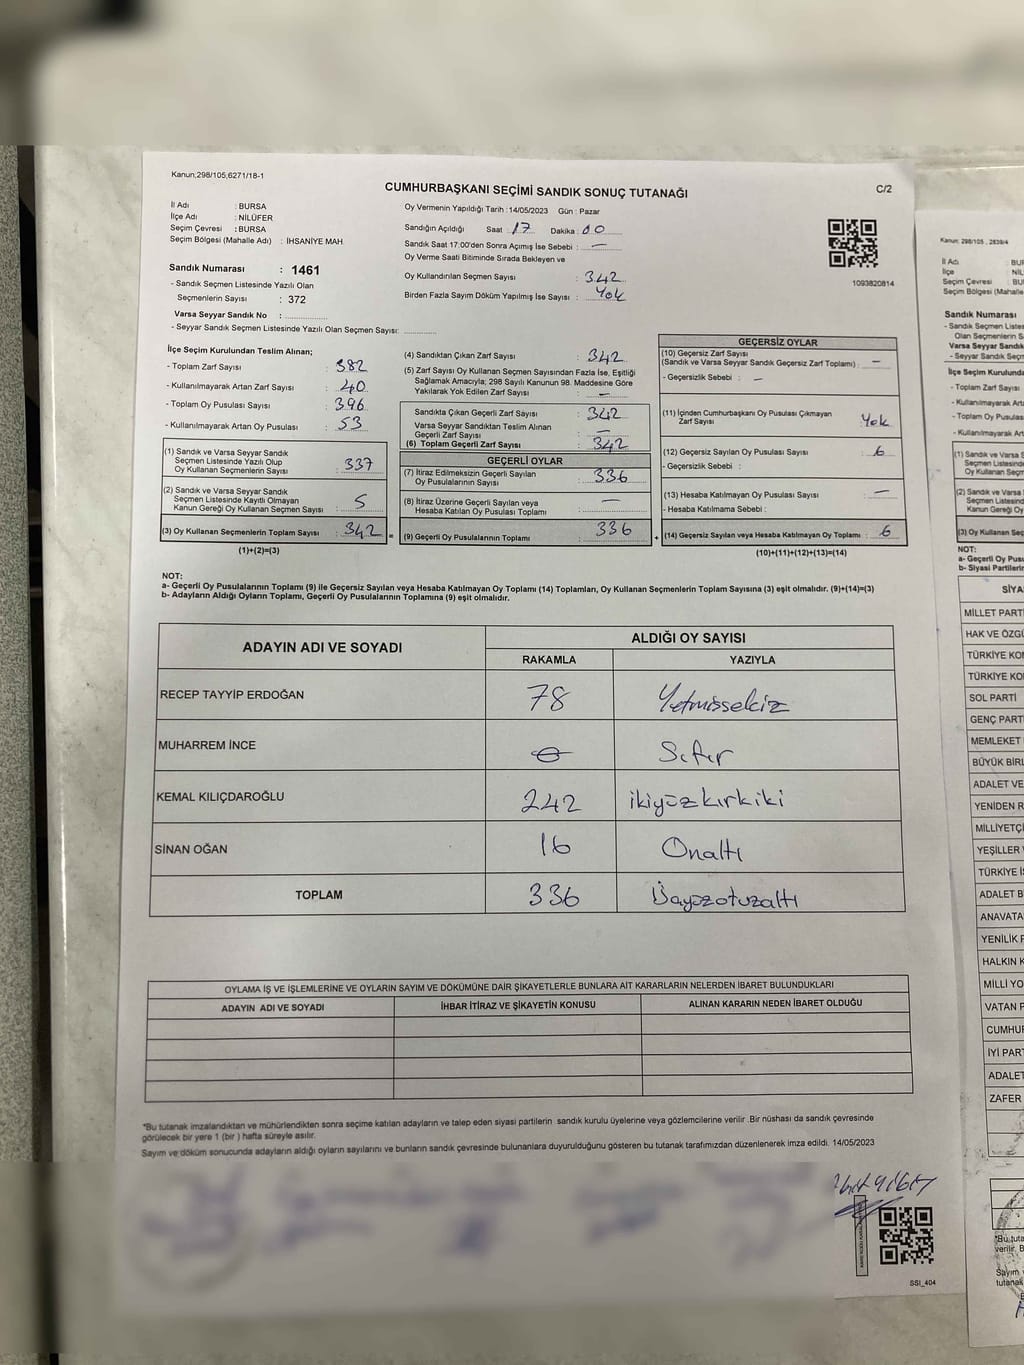 Kanun;298/105;6271/18-1
CUMHURBAŞKANI SEÇİMİ SANDIK SONUÇ TUTANAĞI
C/2
İl Adı : BURSA
İlçe Adı : NİLÜFER
Seçim Çevresi : BURSA
Seçim Bölgesi (Mahalle Adı) : İHSANİYE MAH.
Oy Vermenin Yapıldığı Tarih : 14/05/2023 Gün : Pazar
Sandığın Açıldığı Saat : 17 Dakika : 00
Sandık Saat 17:00'den Sonra Açımış İse Sebebi : —
Oy Verme Saati Bitiminde Sırada Bekleyen ve
Oy Kullandırılan Seçmen Sayısı : 342
Birden Fazla Sayım Döküm Yapılmış İse Sayısı : Yok
1093820814
Sandık Numarası : 1461
- Sandık Seçmen Listesinde Yazılı Olan
Seçmenlerin Sayısı : 372
Varsa Seyyar Sandık No :
- Seyyar Sandık Seçmen Listesinde Yazılı Olan Seçmen Sayısı:
İlçe Seçim Kurulundan Teslim Alınan;
- Toplam Zarf Sayısı : 382
- Kullanılmayarak Artan Zarf Sayısı : 40
- Toplam Oy Pusulası Sayısı : 396
- Kullanılmayarak Artan Oy Pusulası : 53
(1) Sandık ve Varsa Seyyar Sandık
Seçmen Listesinde Yazılı Olup
Oy Kullanan Seçmenlerin Sayısı : 337
(2) Sandık ve Varsa Seyyar Sandık
Seçmen Listesinde Kayıtlı Olmayan
Kanun Gereği Oy Kullanan Seçmen Sayısı : 5
(3) Oy Kullanan Seçmenlerin Toplam Sayısı : 342 =
(1)+(2)=(3)
(4) Sandıktan Çıkan Zarf Sayısı : 342
(5) Zarf Sayısı Oy Kullanan Seçmen Sayısından Fazla İse, Eşitliği
Sağlamak Amacıyla; 298 Sayılı Kanunun 98. Maddesine Göre
Yakılarak Yok Edilen Zarf Sayısı : —
Sandıkta Çıkan Geçerli Zarf Sayısı : 342
Varsa Seyyar Sandıktan Teslim Alınan
Geçerli Zarf Sayısı : —
(6) Toplam Geçerli Zarf Sayısı : 342
GEÇERLİ OYLAR
(7) İtiraz Edilmeksizin Geçerli Sayılan
Oy Pusulalarının Sayısı : 336
(8) İtiraz Üzerine Geçerli Sayılan veya
Hesaba Katılan Oy Pusulası Toplamı : —
(9) Geçerli Oy Pusulalarının Toplamı : 336 +
GEÇERSİZ OYLAR
(10) Geçersiz Zarf Sayısı
(Sandık ve Varsa Seyyar Sandık Geçersiz Zarf Toplamı) : —
- Geçersizlik Sebebi : —
(11) İçinden Cumhurbaşkanı Oy Pusulası Çıkmayan
Zarf Sayısı : Yok
(12) Geçersiz Sayılan Oy Pusulası Sayısı : 6
- Geçersizlik Sebebi :
(13) Hesaba Katılmayan Oy Pusulası Sayısı : —
- Hesaba Katılmama Sebebi :
(14) Geçersiz Sayılan veya Hesaba Katılmayan Oy Toplamı : 6
(10)+(11)+(12)+(13)=(14)
NOT:
a- Geçerli Oy Pusulalarının Toplamı (9) ile Geçersiz Sayılan veya Hesaba Katılmayan Oy Toplamı (14) Toplamları, Oy Kullanan Seçmenlerin Toplam Sayısına (3) eşit olmalıdır. (9)+(14)=(3)
b- Adayların Aldığı Oyların Toplamı, Geçerli Oy Pusulalarının Toplamına (9) eşit olmalıdır.
ADAYIN ADI VE SOYADI
ALDIĞI OY SAYISI
RAKAMLA YAZIYLA
RECEP TAYYİP ERDOĞAN 78 Yetmişsekiz
MUHARREM İNCE 0 Sıfır
KEMAL KILIÇDAROĞLU 242 ikiyüzkırkiki
SİNAN OĞAN 16 Onaltı
TOPLAM 336 Üçyüzotuzaltı
OYLAMA İŞ VE İŞLEMLERİNE VE OYLARIN SAYIM VE DÖKÜMÜNE DAİR ŞİKAYETLERLE BUNLARA AİT KARARLARIN NELERDEN İBARET BULUNDUKLARI
ADAYIN ADI VE SOYADI İHBAR İTİRAZ VE ŞİKAYETİN KONUSU ALINAN KARARIN NEDEN İBARET OLDUĞU
*Bu tutanak imzalandıktan ve mühürlendikten sonra seçime katılan adayların ve talep eden siyasi partilerin sandık kurulu üyelerine veya gözlemcilerine verilir .Bir nüshası da sandık çevresinde
görülecek bir yere 1 (bir ) hafta süreyle asılır.
Sayım ve döküm sonucunda adayların aldığı oyların sayılarını ve bunların sandık çevresinde bulunanlara duyurulduğunu gösteren bu tutanak tarafımızdan düzenlenerek imza edildi. 14/05/2023
SSI_404
Kanun; 298/105 , 2839/4
İl Adı
İlçe
Seçim Çevresi
Seçim Bölgesi (Mahalle
Sandık Numarası
- Sandık Seçmen
Olan Seçmenlerin
Varsa Seyyar Sandık
- Seyyar Sandık Seç
İlçe Seçim Kurulunda
- Toplam Zarf Sayısı
- Kullanılmayarak
- Toplam Oy Pusulası
- Kullanılmayarak
NOT:
a- Geçerli Oy
b- Siyasi Partilerin
MİLLET PARTİ
HAK VE ÖZGÜ
TÜRKİYE KO
TÜRKİYE KO
SOL PARTİ
GENÇ PARTİ
MEMLEKET
BÜYÜK BİRL
ADALET VE
YENİDEN R
MİLLİYETÇİ
YEŞİLLER
TÜRKİYE İŞ
ADALET B
ANAVATA
YENİLİK P
HALKIN K
MİLLİ YO
VATAN P
CUMHUR
İYİ PART
ADALET
ZAFER